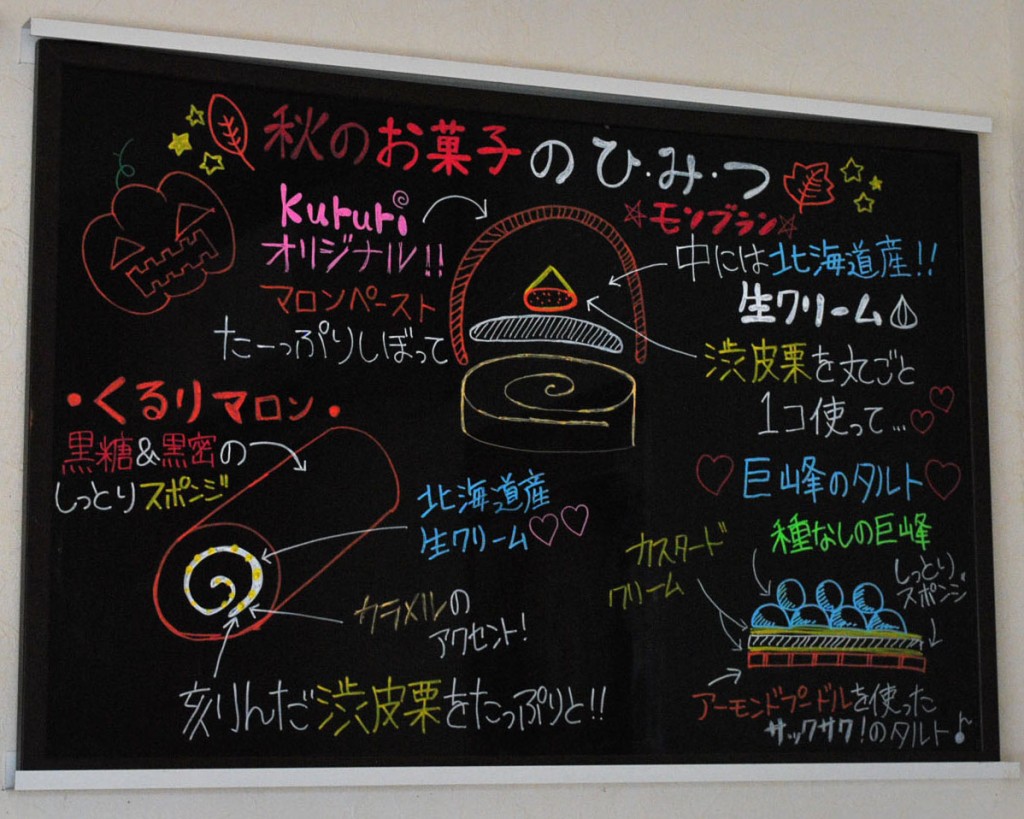 秋のお菓子のひ・み・つ
Kururi
オリジナル!!
マロンペースト
たーっぷりしぼって
☆モンブラン☆
中には北海道産!!
生クリーム
渋皮栗を丸ごと
1コ使って…
・くるりマロン・
黒糖&黒密の
しっとりスポンジ
北海道産
生クリーム♡♡
カラメルの
アクセント!
刻りんだ渋皮栗をたっぷりと!!
♡巨峰のタルト♡
種なしの巨峰
カスタード
クリーム
しっとり
スポンジ
アーモンドプードルを使った
サックサク!のタルト♪